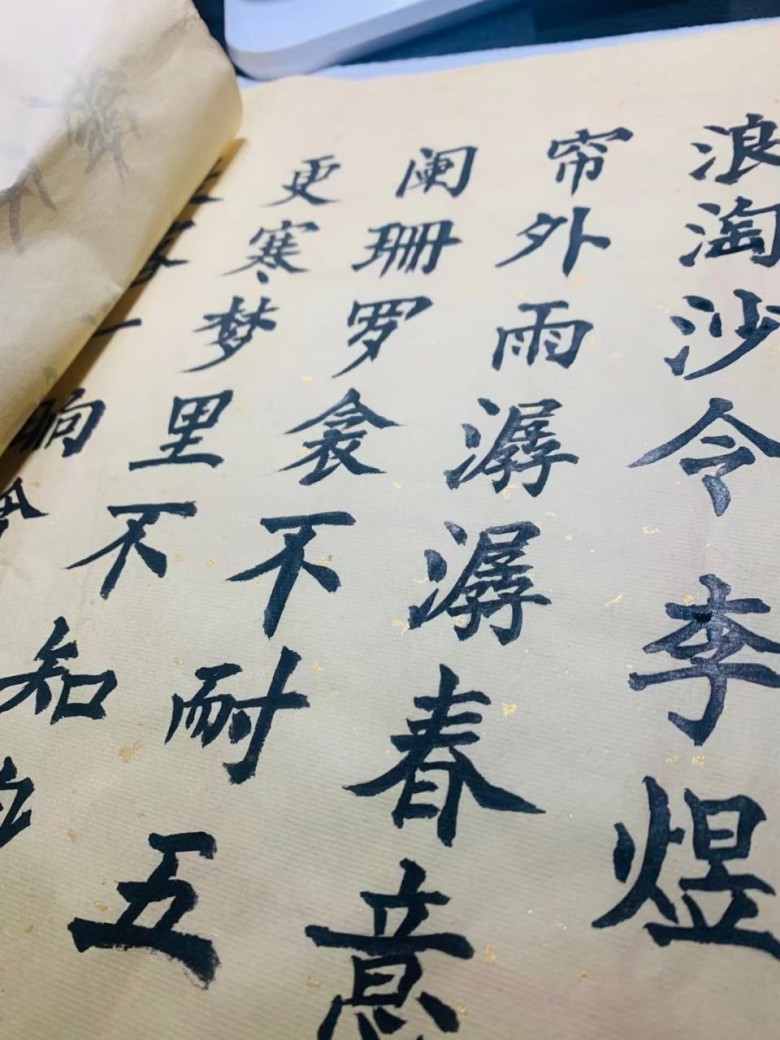 浪淘沙令李煜
帘外雨潺潺春意
阑珊罗衾不耐五
更寒梦里不知
一晌